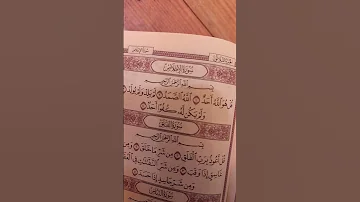 سورة الإخلاص
بسم الله الرحمن الرحيم
قل هو الله أحد ۝ الله الصمد ۝ لم يلد ولم يولد ۝
ولم يكن له كفوا أحد ۝
سورة الفلق
بسم الله الرحمن الرحيم
قل أعوذ برب الفلق ۝ من شر ما خلق ۝ ومن
غاسق إذا وقب ۝ ومن شر النفاثات في العقد
ومن شر حاسد إذا حسد ۝
سورة الناس